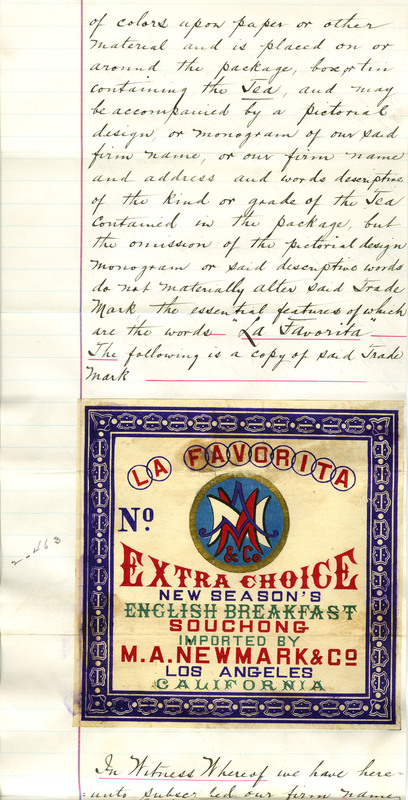 of colors upon paper or other
material and is placed on or
around the package, box or tin
containing the Tea, and may
be accompanied by a pictorial
design, or monogram of our said
firm name, or our firm name
and address and words descriptive
of the kind or grade of the Tea
contained in the package, but
the omission of the pictorial design
monogram or said descriptive words
do not materially alter said Trade
Mark the essential features of which
are the words "La Favorita"
The following is a copy of said Trade
Mark
LA FAVORITA
No
MAN
& Co
EXTRA CHOICE
NEW SEASON'S
ENGLISH BREAKFAST
SOUCHONG
IMPORTED BY
M. A. NEWMARK & Co
LOS ANGELES
CALIFORNIA
2-463
In Witness Whereof we have here=
=unto subscribed our firm name